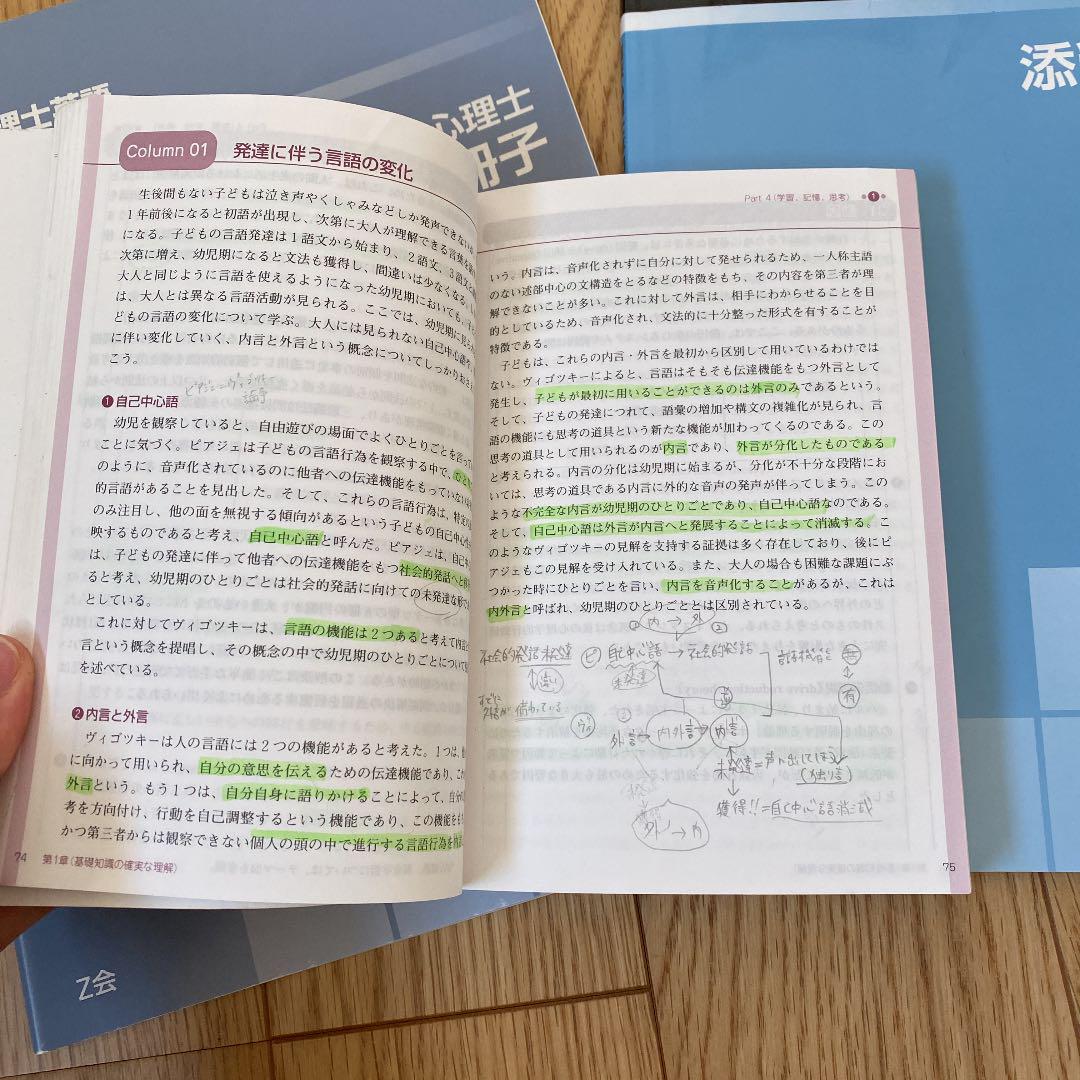 理士英語
心理士
冊子
添
Column 01 発達に伴う言語の変化
生後間もない子どもは泣き声やくしゃみなどしか発声できない
1年前後になると初語が出現し、次第に大人が理解できる言葉を
になる。子どもの言語発達は1語文から始まり、2語文、3語文
次第に増え、幼児期になると文法も獲得し、間違いは少なくなる。
大人と同じように言語を使えるようになった幼児期においても、
は、大人とは異なる言語活動が見られる。ここでは、幼児期に見
どもの言語の変化について学ぶ。大人には見られない自己中心語
に伴い変化していく、内言と外言という概念についてしっかりおさ
こう。
❶自己中心語
幼児を観察していると、自由遊びの場面でよくひとりごとを言っ
ことに気づく。ピアジェは子どもの言語行為を観察する中で、
のように、音声化されているのに他者への伝達機能をもっていない
的言語があることを見出した。そして、これらの言語行為は、特定
のみ注目し、他の面を無視する傾向があるという子どもの自己中心
映するものであると考え、自己中心語と呼んだ。ピアジェは、自己
は、子どもの発達に伴って他者への伝達機能をもつ社会的発話へと
ると考え、幼児期のひとりごとは社会的発話に向けての未発達な形
としている。
これに対してヴィゴツキーは、言語の機能は2つあると考えて内言
言という概念を提唱し、その概念の中で幼児期のひとりごとについて
を述べている。
❷内言と外言
ヴィゴツキーは人の言語には2つの機能があると考えた。1つは、
に向かって用いられ、自分の意思を伝えるための伝達機能であり、これ
外言という。もう1つは、自分自身に語りかけることによって、自分
考を方向付け、行動を自己調整するという機能であり、この機能をも
かつ第三者からは観察できない個人の頭の中で進行する言語行為を
74 第1章(基礎知識の確実な理解)
Part 4(学習、記憶、思考) ❶
いう。内言は、音声化されずに自分に対して発せられるため、一人称主語
のない述部中心の文構造をとるなどの特徴をもち、その内容を第三者が理
解できないことが多い。これに対して外言は、相手にわからせることを目
的としているため、音声化され、文法的に十分整った形式を有することが
特徴である。
子どもは、これらの内言・外言を最初から区別して用いているわけでは
ない。ヴィゴツキーによると、言語はそもそも伝達機能をもつ外言として
発生し、子どもが最初に用いることができるのは外言のみであるという。
そして、子どもの発達につれて、語彙の増加や構文の複雑化が見られ、言
語の機能にも思考の道具という新たな機能が加わってくるのである。この
思考の道具として用いられるのが内言であり、外言が分化したものである
と考えられる。内言の分化は幼児期に始まるが、分化が不十分な段階にお
いては、思考の道具である内言に外的な音声の発声が伴ってしまう。この
ような不完全な内言が幼児期のひとりごとであり、自己中心語なのである。
そして、自己中心語は外言が内言へと発展することによって消滅する。こ
のようなヴィゴツキーの見解を支持する証拠は多く存在しており、後にピ
アジェもこの見解を受け入れている。また、大人の場合も困難な課題にぶ
つかった時にひとりごとを言い、内言を音声化することがあるが、これは
内外言と呼ばれ、幼児期のひとりごととは区別されている。
① 内 → 外 ②
社会的発話 未発達 ピ 自己中心語 → 社会的発話 無
未発達
違い 逆 有
備わっている ヴ
外言 → 内外言 → 内言
未発達 = 声に出てしまう
(独り言)
獲得!! = 自己中心語消滅
外 → 内
75
Z会